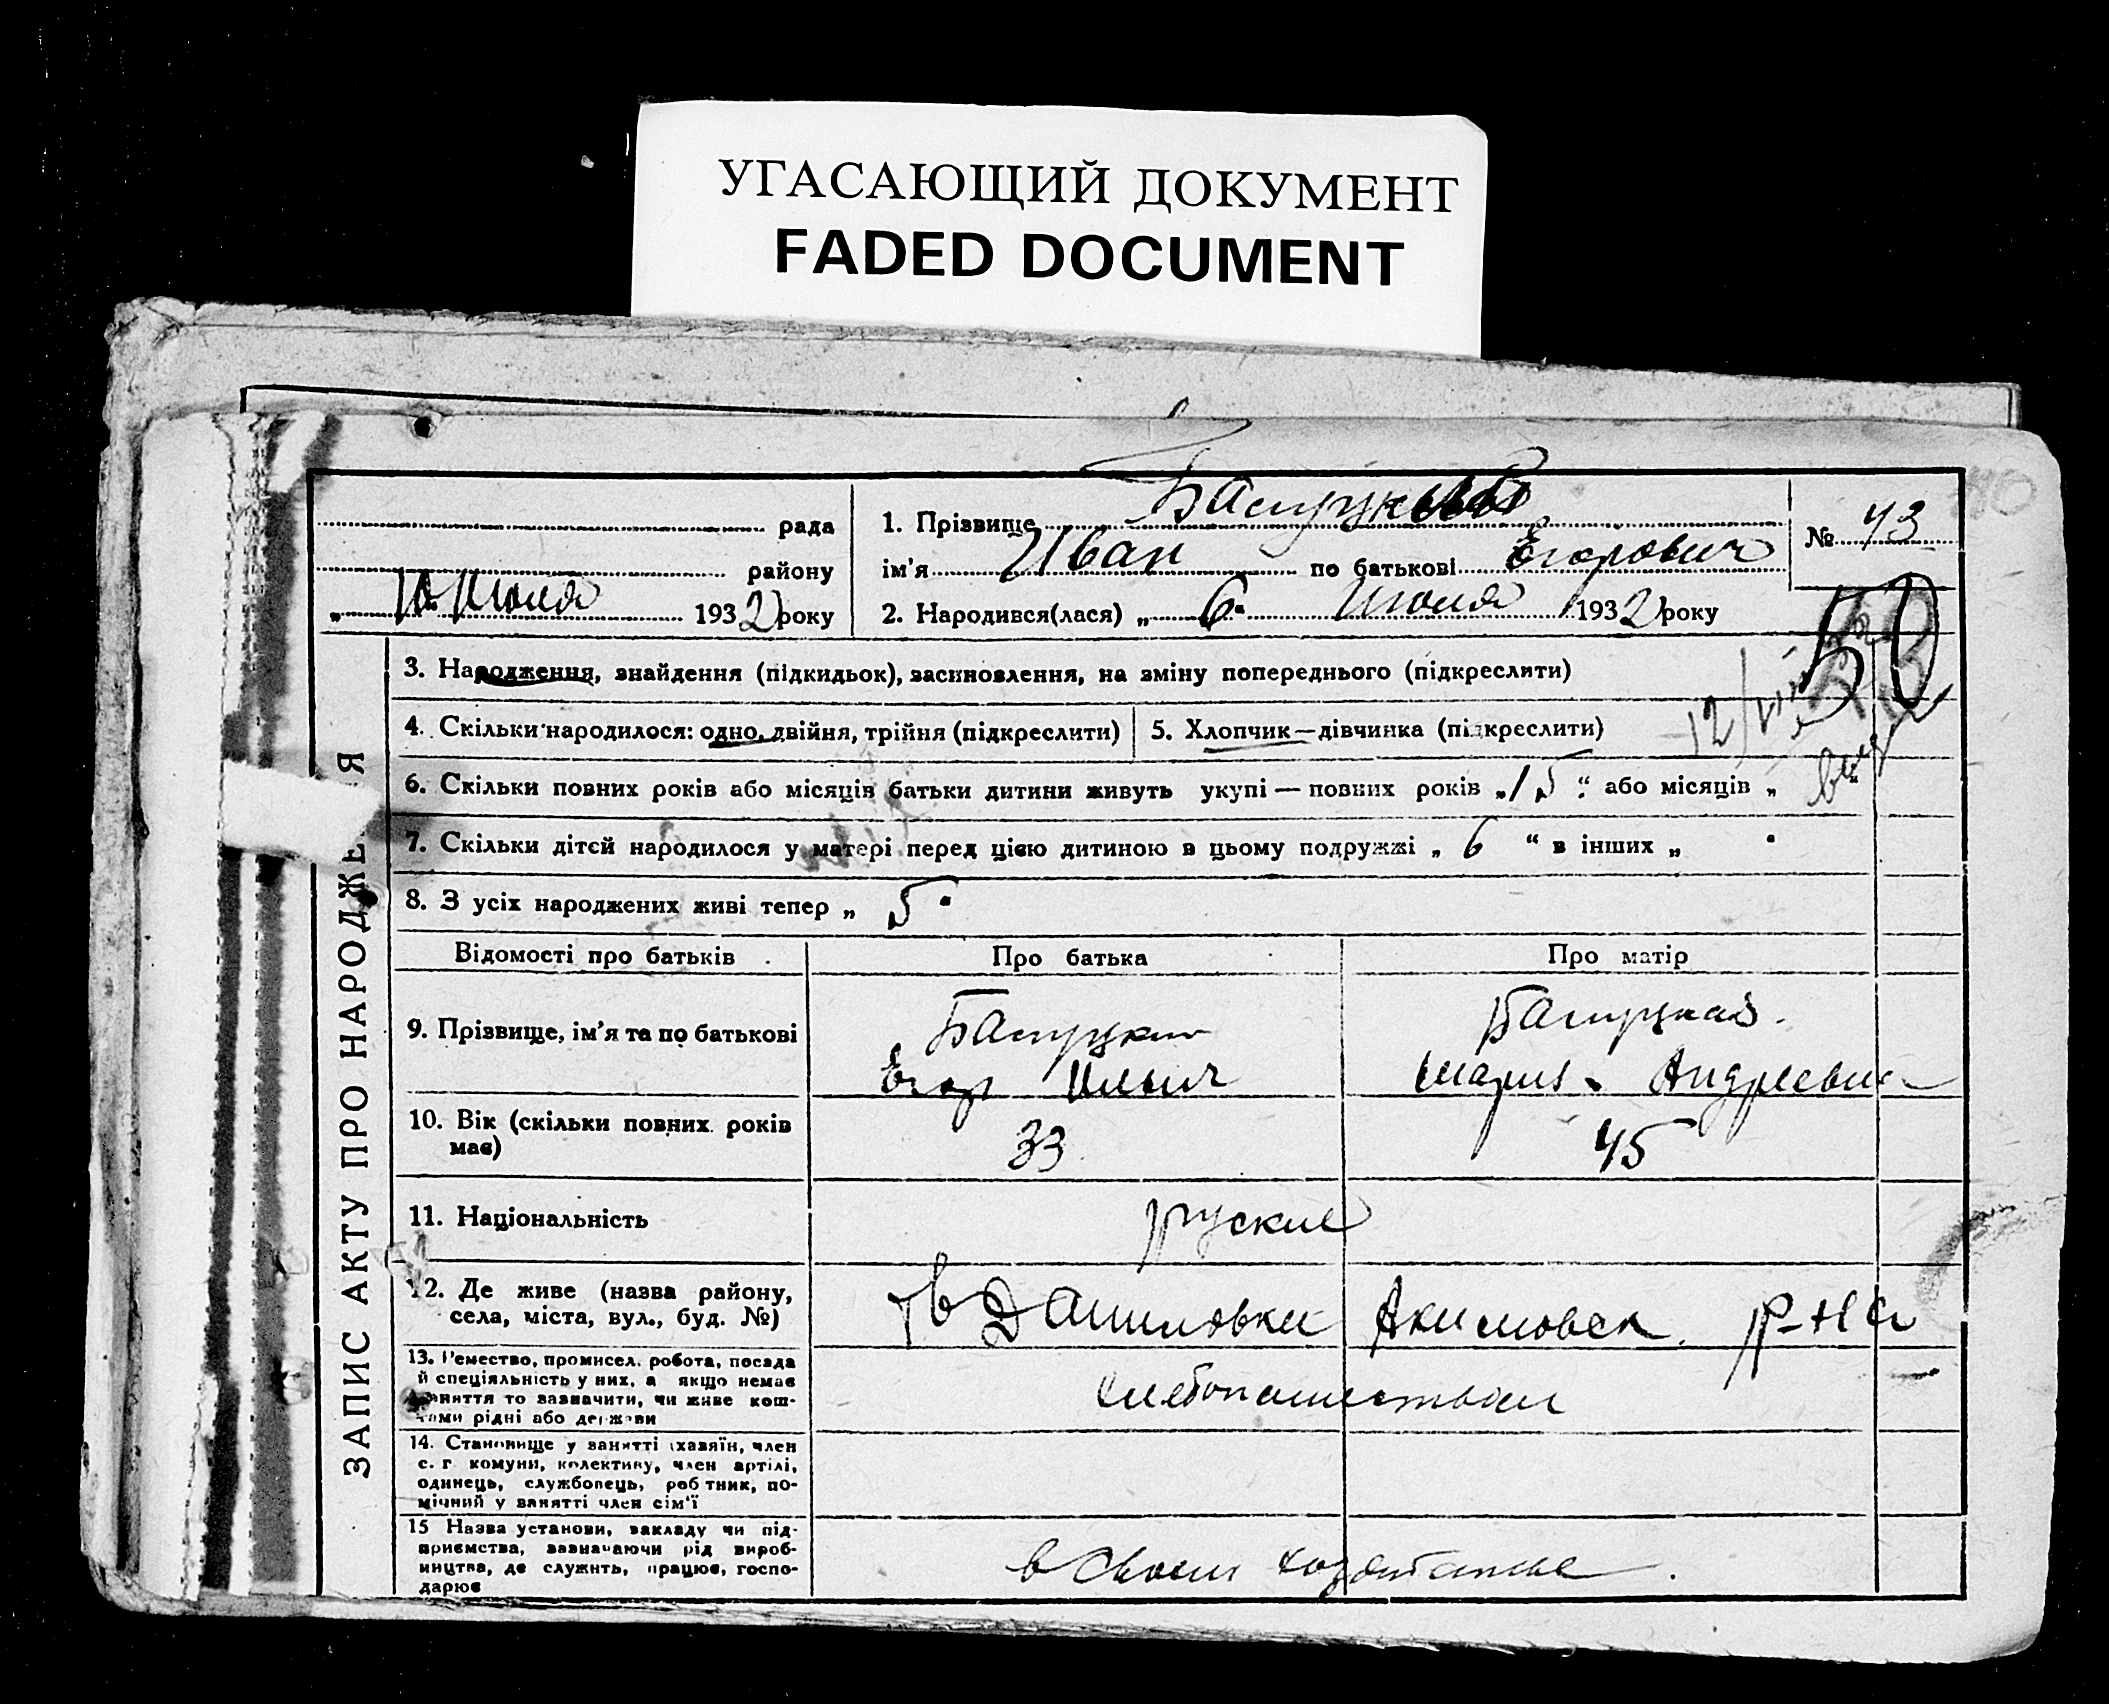 УГАСАЮЩИЙ ДОКУМЕНТ
FADED DOCUMENT
рада
району
„ 10 Июля 1932 року
1. Прізвище
ім'я Иван по батькові Егорович
2. Народився(лася) „ 6 " Июля 1932 року
№ 43
50
ЗАПИС АКТУ ПРО НАРОДЖЕ Я
3. Народження, знайдення (підкидьок), засиновлення, на зміну попереднього (підкреслити)
4. Скільки народилося: одно, двійня, трійня (підкреслити)
5. Хлопчик—дівчинка (підкреслити)
6. Скільки повних років або місяців батьки дитини живуть укупі — повних років „ 15 " або місяців „ "
7. Скільки дітей народилося у матері перед цією дитиною в цьому подружжі „ 6 " в інших „ "
8. З усіх народжених живі тепер „ 5 "
Відомості про батьків
Про батька
Про матір
9. Прізвище, ім'я та по батькові
Егор Ильич
Мария Андреевна
10. Вік (скільки повних років має)
33
45
11. Національність
руские
12. Де живе (назва району,
села, міста, вул., буд. №)
Акимовск. р-на
13. Ремество, промисел, робота, посада
й спеціяльність у них, а якщо немає
заняття то зазначити, чи живе кош-
тами рідні або держави
хлебопашеством
14. Становище у занятті (хазяїн, член
с. г. комуни, колективу, член артілі,
одинець, службовець, робітник, по-
мічний у занятті член сім'ї
15 Назва установи, закладу чи під-
приємства, зазначаючи рід вироб-
ництва, де служить, працює, госпо-
дарює
в своем хозяйстве.